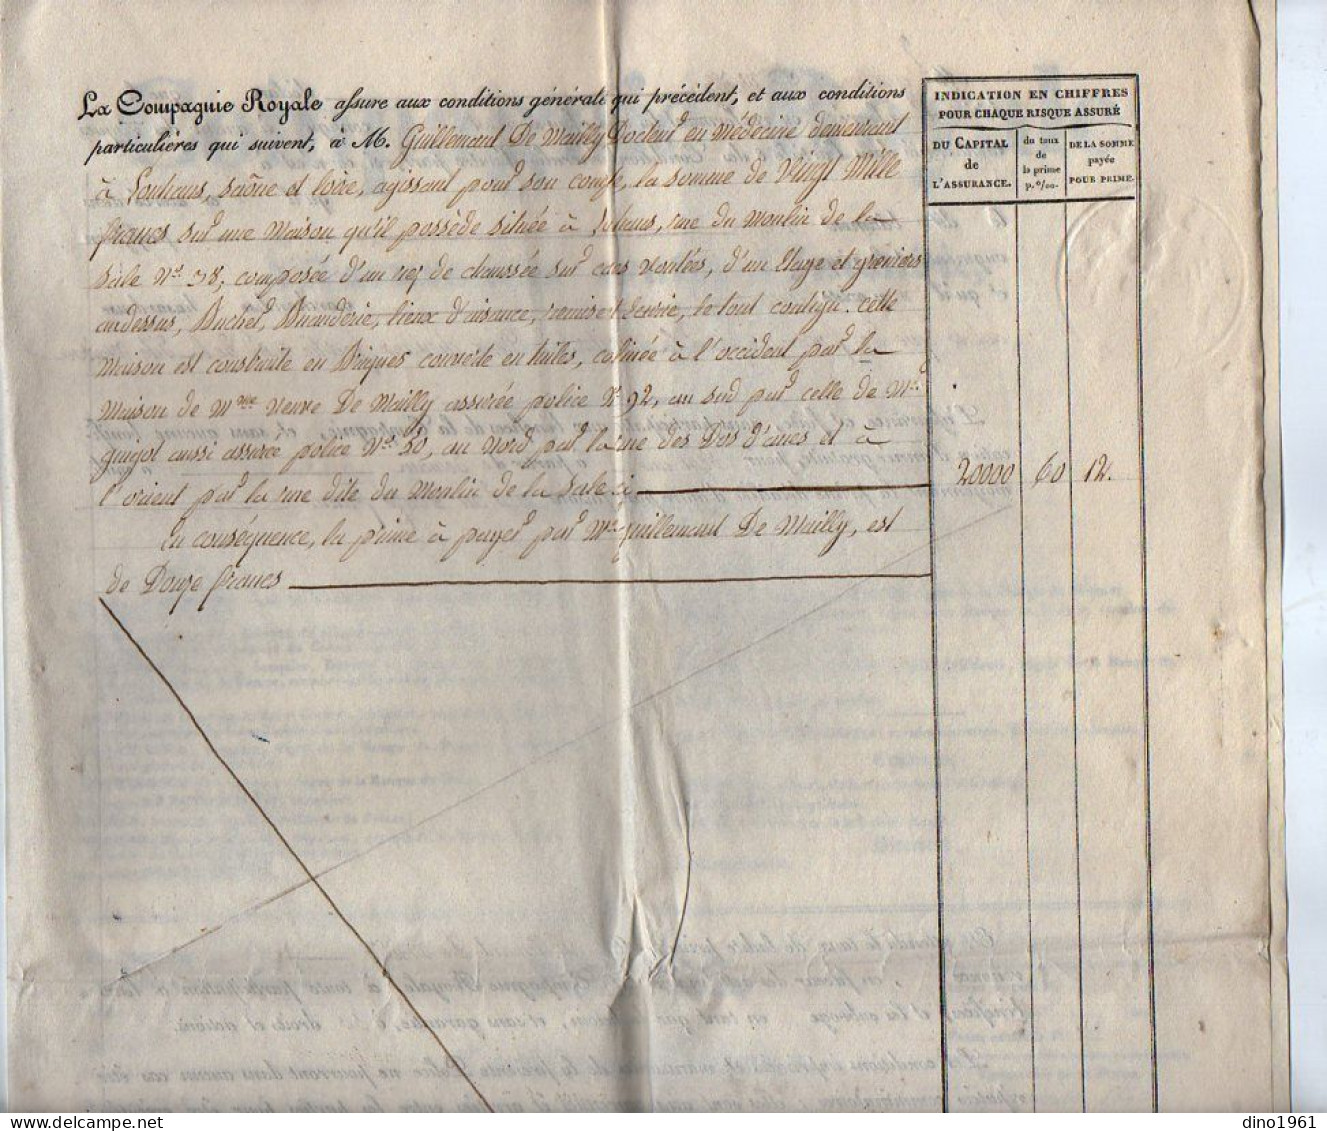 La Compagnie Royale assure aux conditions générales qui précédent, et aux conditions
particulières qui suivent, à M. Guillemaut De Mailly Docteur en Médecine demeurant
à Louhans, saône et loire, agissant pour son compte, la somme de Vingt Mille
francs sur une Maison qu'il possède située à Louhans, rue du Moulin de la
Sale N° 38, composée d'un rez de chaussée sur caves voutées, d'un Etage et greniers
audessus, Bucher, Buanderie, lieux d'aisance, remise et Ecurie, le tout contigu. cette
Maison est construite en Briques couverte en tuiles, confinée à l'occident par la
Maison de Mme Veuve De Mailly assurée police N° 92, au sud par celle de Mr
guigot aussi assurée police N° 50, au Nord par la rue des Dos d'anes et à
l'orient par la rue dite du Moulin de la Sale
En conséquence, la prime à payer par Mr guillemaut De Mailly, est
de Douze francs
INDICATION EN CHIFFRES
POUR CHAQUE RISQUE ASSURÉ
DU CAPITAL
de
L'ASSURANCE.
du taux
de
la prime
p. 0/00.
DE LA SOMME
payée
POUR PRIME.
20000 60 12.
dino1961